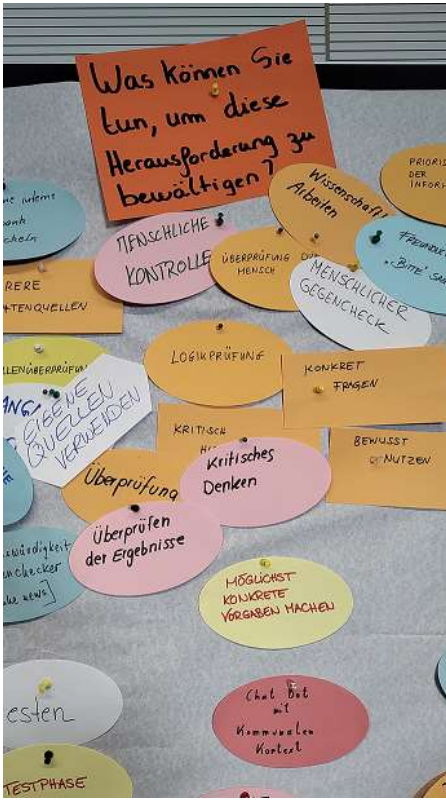 Was können Sie
tun, um diese
Herausforderung zu
bewältigen?
Wissenschaftl.
Arbeiten
PRIORIS
DER
INFOR
interne
bank
MENSCHLICHE
KONTROLLE
ÜBERPRÜFUNG
MENSCH
FREUNDL
"BITTE" SA
MENSCHLICHER
GEGENCHECK
RERE
TENQUELLEN
LOGIKPRÜFUNG
KONKRET
FRAGEN
LLENÜBERPRÜFUN
ANG!
EIGENE
QUELLEN
VERWENDEN
KRITISCH
BEWUSST
NUTZEN
Kritisches
Denken
Überprüfung
Überprüfen
der Ergebnisse
würdigkeit
enchecker
ke news]
MÖGLICHST
KONKRETE
VORGABEN MACHEN
esten
Chat Bot
mit
Kommunalen
Kontext
TESTPHASE